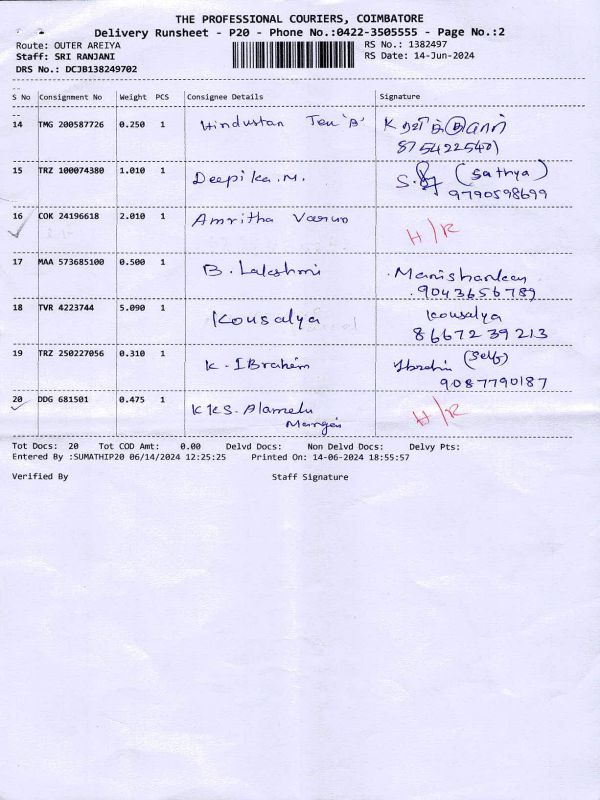 THE PROFESSIONAL COURIERS, COIMBATORE
Delivery Runsheet - P20 - Phone No.:0422-3505555 - Page No.:2
Route: OUTER AREIYA RS No.: 1382497
Staff: SRI RANJANI RS Date: 14-Jun-2024
DRS No.: DCJB138249702
S No Consignment No Weight PCS Consignee Details Signature
14 TMG 200587726 0.250 1 Hindustan
8754225401
15 TRZ 100074380 1.010 1 Deepika.M. (Sathya)
9790598699
16 COK 24196618 2.010 1 Amritha H/R
17 MAA 573685100 0.500 1 B. Lakshmi
9043656789
18 TVR 4223744 5.090 1 Kousalya Kousalya
8667239213
19 TRZ 250227056 0.310 1 K. IBrahim Ibrahim (Self)
9087790187
20 DDG 681501 0.475 1 KKS. Alamelu H/R
Tot Docs: 20 Tot COD Amt: 0.00 Delvd Docs: Non Delvd Docs: Delvy Pts:
Entered By :SUMATHIP20 06/14/2024 12:25:25 Printed On: 14-06-2024 18:55:57
Verified By Staff Signature